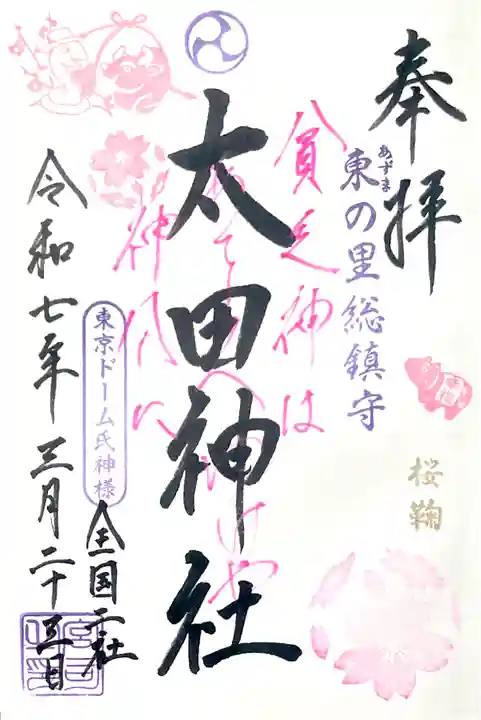 奉拝
東の里総鎮守
あずま
桜鞠
貧乏神は
太田神社
神代に
東京ドーム氏神様
全国二社
令和七年三月二十三日